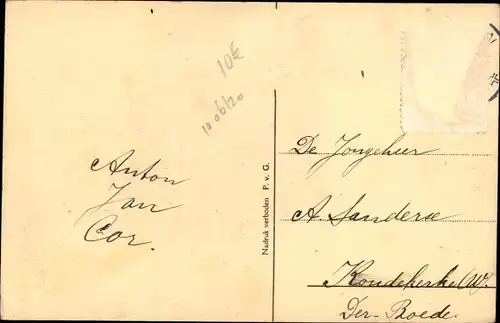 10€
Anton
Jan
Cor.
Nadruk verboden P. v. G.
De Jongeheer
A. Sanderse
Koudekerke (W.
Der-Boede